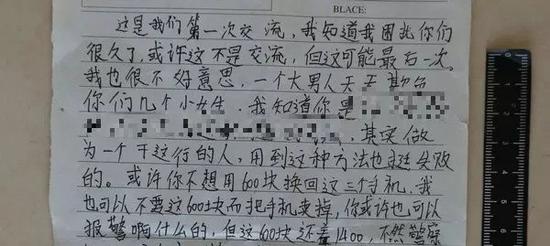 BLACE:
这是我们第一次交流,我知道我困扰你们
很久了,或许这不是交流,但这可能最后一次。
我也很不好意思,一个大男人天天欺负
你们几个小女生.我知道你是
其实做
为一个干这行的人,用到这种方法也挺失败
的。或许你不想用600块换回这三个手机.我
也可以不要这600块而把手机卖掉,你或许也可以
报警啊什么的,但这600块还差1400,不然警察
1
2
3
4
5
6